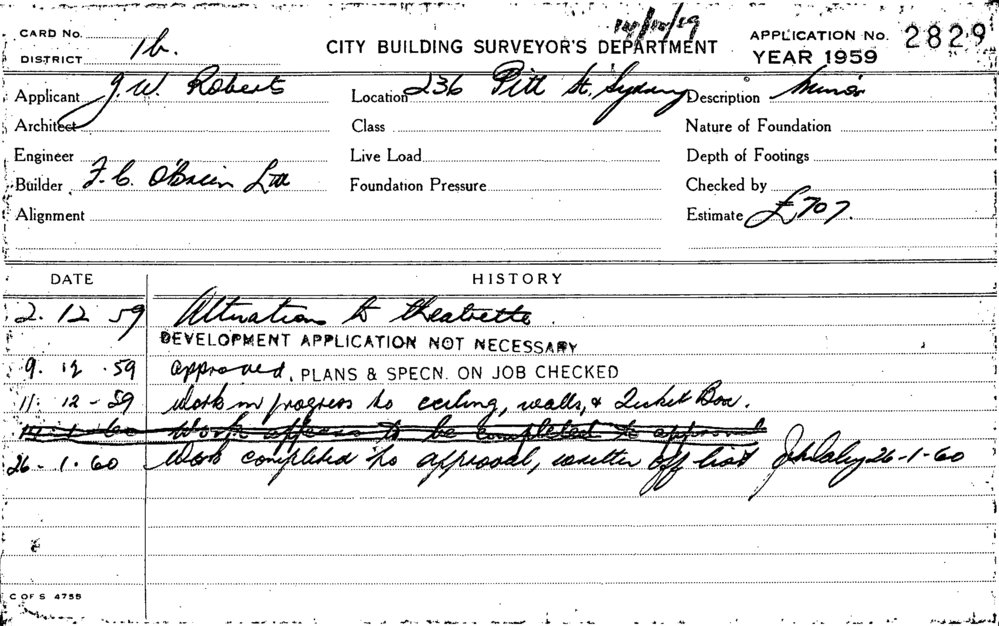 14/12/59
CARD No.
DISTRICT 1b.
CITY BUILDING SURVEYOR'S DEPARTMENT
APPLICATION No. 2829
YEAR 1959
Applicant J. W. Roberts
Location 236 Pitt St, Sydney
Description Minor
Architect
Class
Nature of Foundation
Engineer
Live Load
Depth of Footings
Builder F. C. O'Brien Ltd
Foundation Pressure
Checked by
Alignment
Estimate £707.
DATE HISTORY
2. 12 59 Alterations to theatrette.
DEVELOPMENT APPLICATION NOT NECESSARY
9. 12 .59 approved, PLANS & SPECN. ON JOB CHECKED
11. 12 - 59 Work in progress to ceiling, walls, & Ticket Box.
14-1-60 Work appears to be completed to approval
26-1-60 Work completed to approval, written off list 26-1-60
C OF S 475B